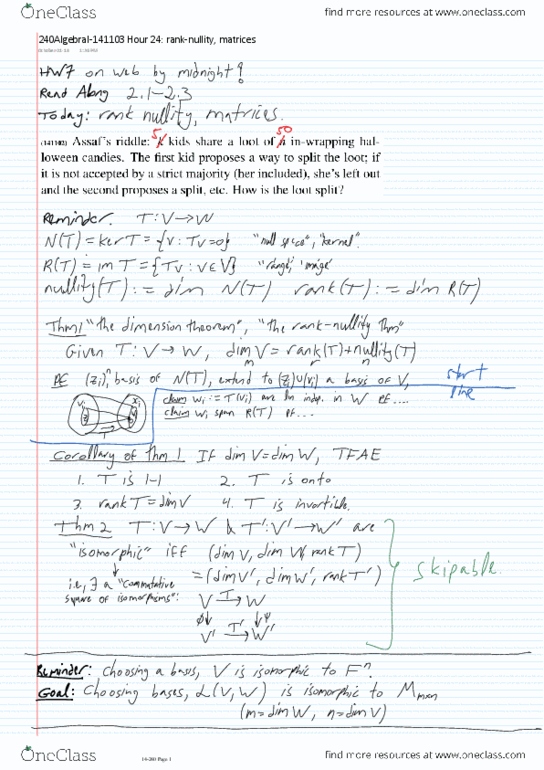 OneClass
find more resources at www.oneclass.com
240AlgebraI-141103 Hour 24: rank-nullity, matrices
HW7 on web by midnight!
Read Along 2.1-2.3
Today: rank nullity, matrices.
(141102) Assaf's riddle: 5 kids share a loot of 50 in-wrapping hal-
loween candies. The first kid proposes a way to split the loot; if
it is not accepted by a strict majority (her included), she's left out
and the second proposes a split, etc. How is the loot split?
Reminder. T: V→W
N(T) = ker T = {v: Tv=0} "null space", "kernel".
R(T) = im T = {Tv: v∈V} "range", "image"
nullity(T) := dim N(T) rank(T) := dim R(T)
Thm 1 "the dimension theorem", "the rank-nullity Thm"
Given T: V→W, dim V = rank(T) + nullity(T)
m r n
PF (zi)ⁿ basis of N(T), extend to (zi)∪(vi) a basis of V,
start
line
claim wi := T(vi) are lin indep. in W PF....
claim wi span R(T) PF...
Corollary of thm 1. If dim V = dim W, TFAE
1. T is 1-1 2. T is onto
3. rank T = dim V 4. T is invertible.
Thm 2 T: V→W & T': V'→W' are
"isomorphic" iff (dim V, dim W, rank T)
= (dim V', dim W', rank T')
i.e., ∃ a "commutative
square of isomorphisms":
V T→ W
φ↓ ↓ψ
V' T'→ W'
skipable.
Reminder: Choosing a basis, V is isomorphic to Fⁿ.
Goal: Choosing bases, L(V,W) is isomorphic to Mm×n
(m=dim W, n=dim V)
14-240 Page 1
OneClass
find more resources at www.oneclass.com